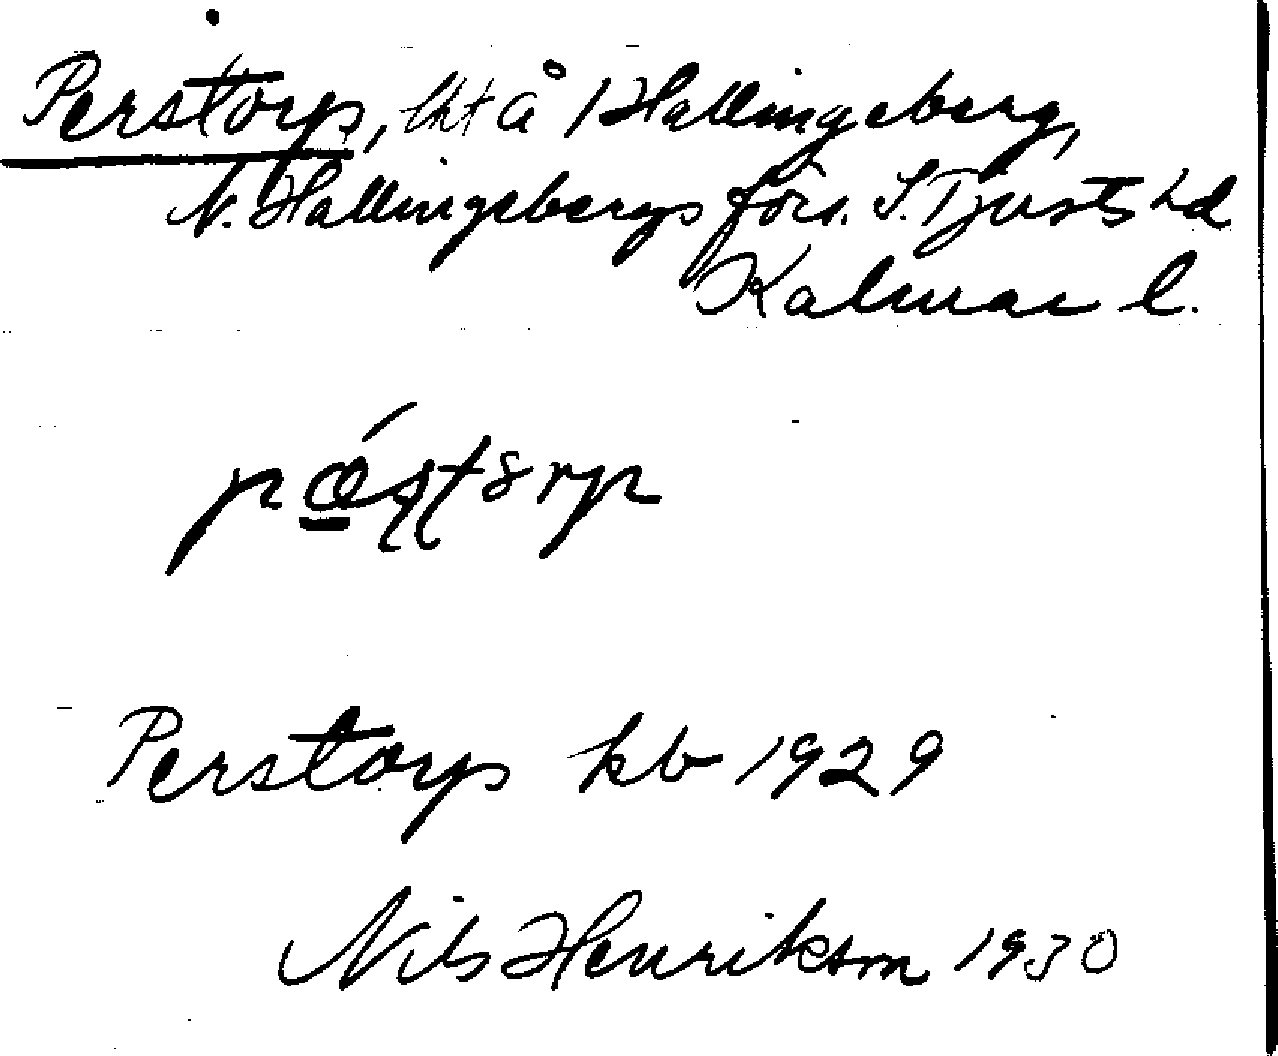 Perstorp, lht å Hallingeberg,
N. Hallingebergs förs. S. Tjusts hd
Kalmar l.
Perstorp kb 1929
Nils Henrikson 1930